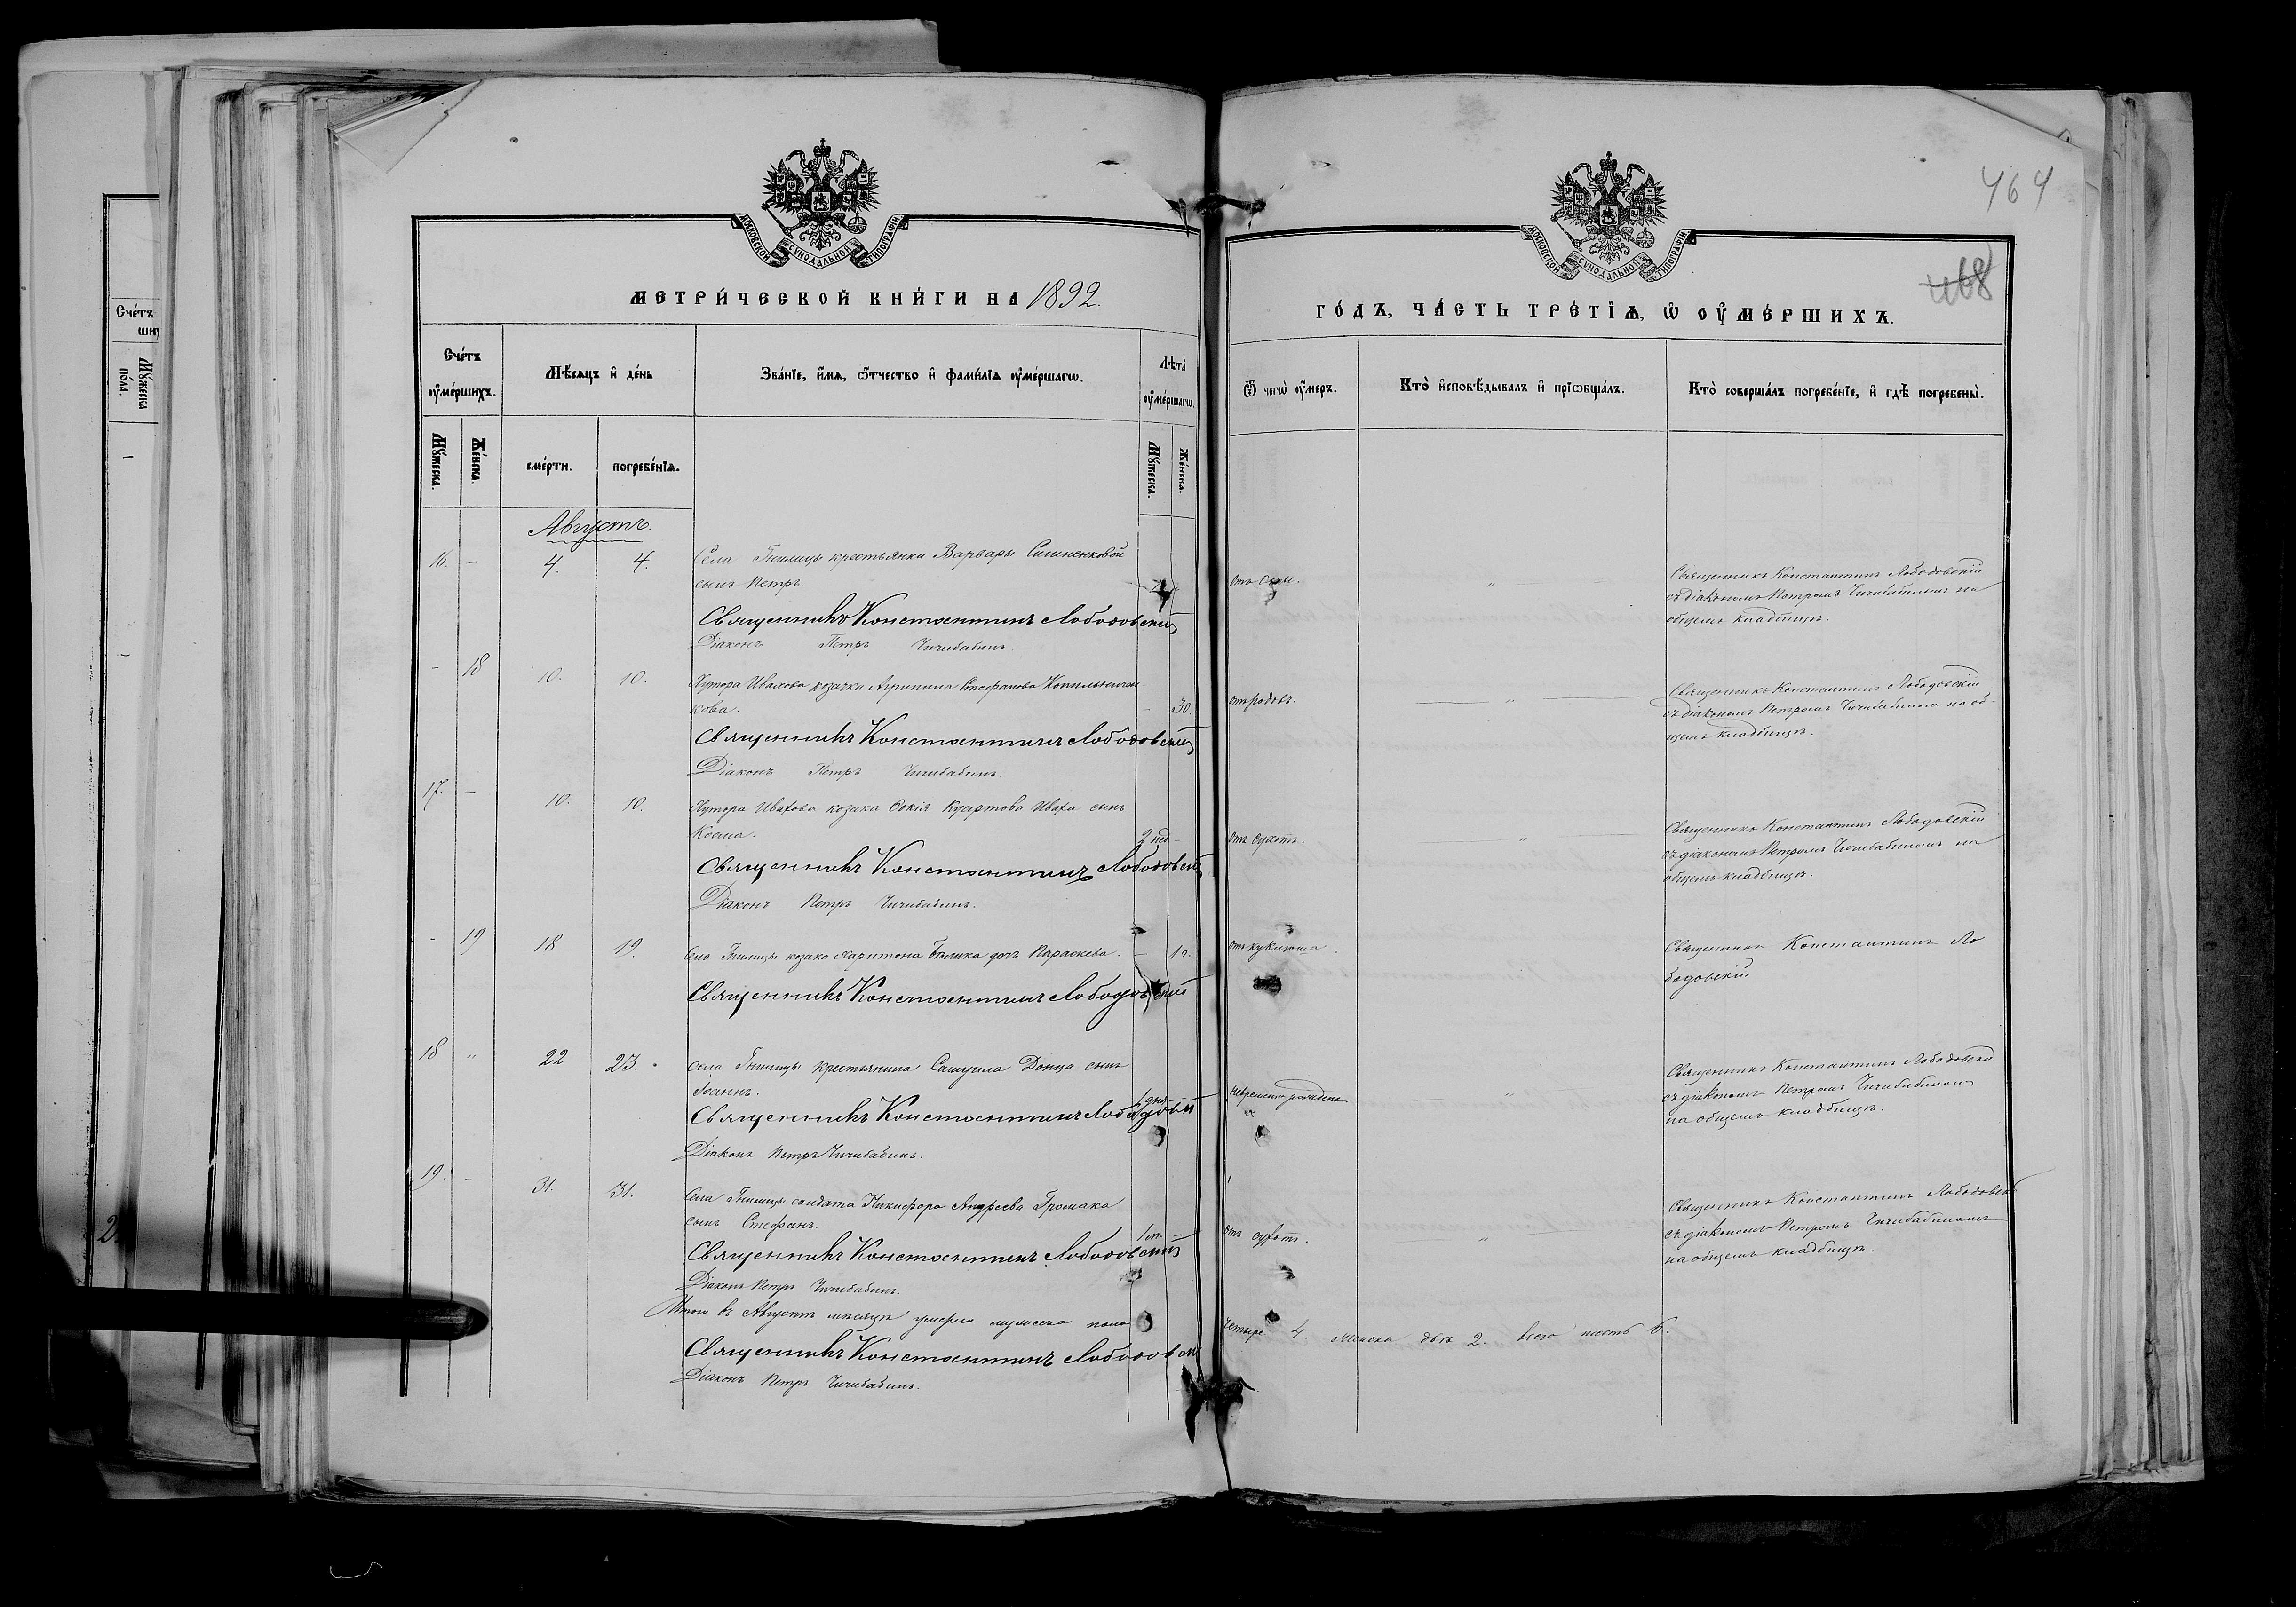 464
468
МОСКОВСКОЙ СѴНОДАЛЬНОЙ ТИПОГРАФІИ
МЕТРИ́ЧЕСКОЙ КНИ́ГИ НА 1892.
Сче́тъ ᲂумершихъ.
Мѣсяцъ и де́нь
Зва́нїе, и́мя, ѻ҆́тчество и фами́лїя ᲂуме́ршагѡ.
Лѣта̀ ᲂуме́ршагѡ.
Мꙋ́жеска.
Же́нска.
сме́рти.
погребе́нїя.
Мꙋ́жеска.
Же́нска.
Августъ.
16. — 4. 4. Села Гнилицы крестьянки Варвары
сынъ Петръ.
Священникъ Константинъ Лободовскій
Діаконъ Петръ Чичибабинъ.
— 18 10. 10. Хутора Ивахова козачка Агрипина Стефанова
кова. — 30.
Священникъ Константинъ Лободовскій
Діаконъ Петръ Чичибабинъ.
17. — 10. 10. Хутора Ивахова козака Ивaхa сынъ
Косма. 2 нед —
Священникъ Константинъ Лободовскій
Діаконъ Петръ Чичибабинъ.
— 19 18 19. Села Гнилицы козака Харитона Бѣлика дочь Параскева. — 1 г.
Священникъ Константинъ Лободовскій
18 " 22 23. Села Гнилицы крестьянина Самуила Донца сынъ
Іоаннъ. 1 дня —
Священникъ Константинъ Лободовскій
Діаконъ Петръ Чичибабинъ.
19. — 31. 31. Села Гнилицы солдата Никифора Андреева Громака
сынъ Стефанъ.
Священникъ Константинъ Лободовскій
Діаконъ Петръ Чичибабинъ.
Итого въ Августѣ мѣсяцѣ умерло мужеска пола
Священникъ Константинъ Лободовскій
Діаконъ Петръ Чичибабинъ.
МОСКОВСКОЙ СѴНОДАЛЬНОЙ ТИПОГРАФІИ
ГО́ДЪ, ЧА́СТЬ ТРЕ́ТЇѦ, Ѡ ОУМЕ́РШИХЪ.
Ѿ чегѡ̀ ᲂу́меръ.
Кто̀ исповѣ́дывалъ и прїѡбща́лъ.
Кто̀ соверша́лъ погребе́нїе, и гдѣ̀ погребены̀.
отъ оспы. " Священникъ Константинъ Лободовскій
съ діакономъ Петромъ Чичибабинымъ на
общемъ кладбищѣ.
отъ родовъ. " Священникъ Константинъ Лободовскій
съ діакономъ Петромъ Чичибабинымъ на об-
щемъ кладбищѣ.
отъ сухотъ. " Священникъ Константинъ Лободовскій
съ діакономъ Петромъ Чичибабинымъ на
общемъ кладбищѣ.
отъ куклюша. Священникъ Константинъ Ло
бодовскій
" Священникъ Константинъ Лободовскій
съ діакономъ Петромъ Чичибабинымъ
на общемъ кладбищѣ.
отъ сухотъ. " Священникъ Константинъ Лободовскій
съ діакономъ Петромъ Чичибабинымъ
на общемъ кладбищѣ.
четыре 4. женска двѣ 2. всего шесть 6.